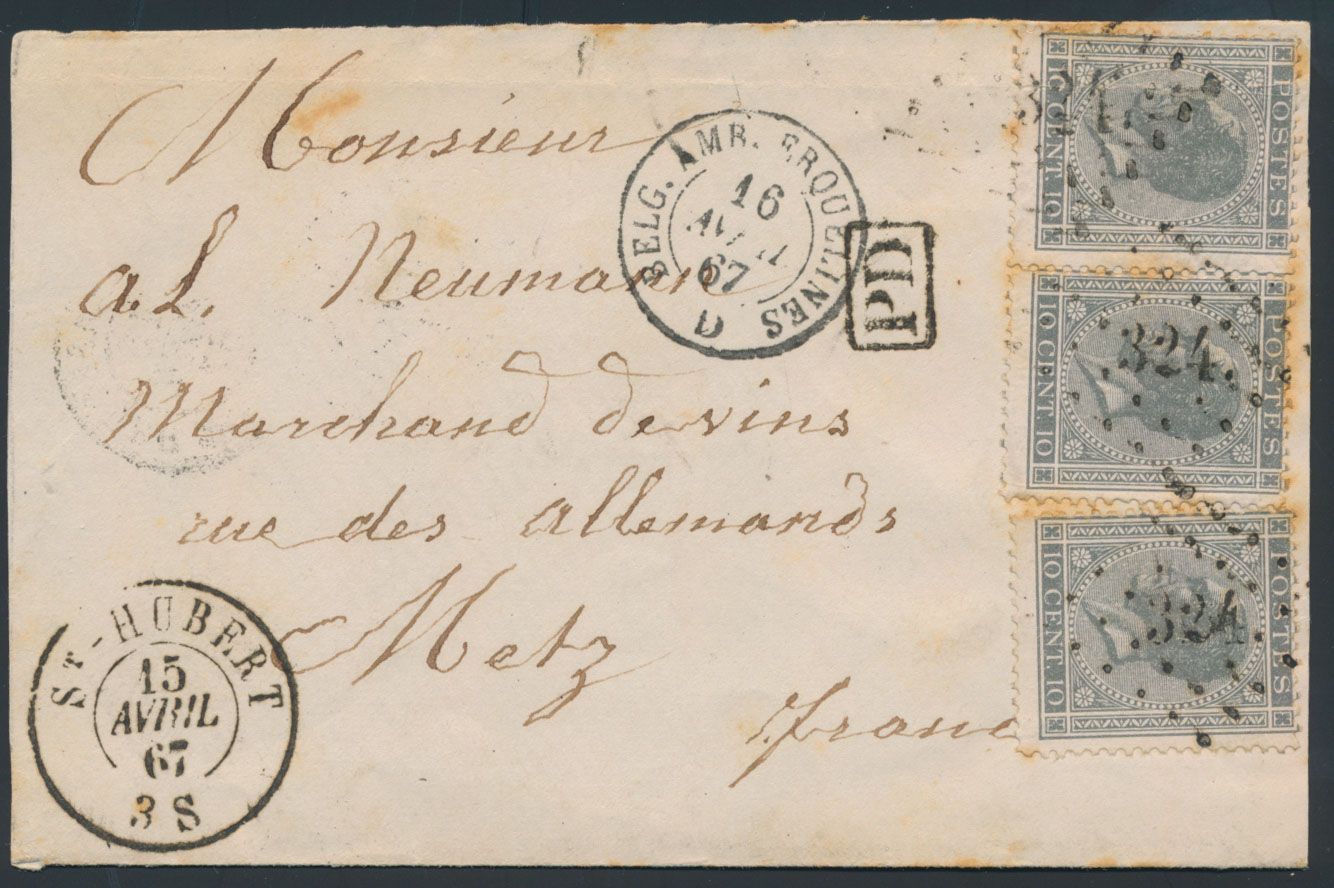 Monsieur
a.L. Neumann
Marchand de vins
rue des allemands
Metz
franc
BELG. AMB. ERQUELINES
16
AVRIL
67
D
PD
ST-HUBERT
15
AVRIL
67
3 S
324
POSTES
10 CENT. 10
324
POSTES
10 CENT. 10
324
POSTES
10 CENT. 10